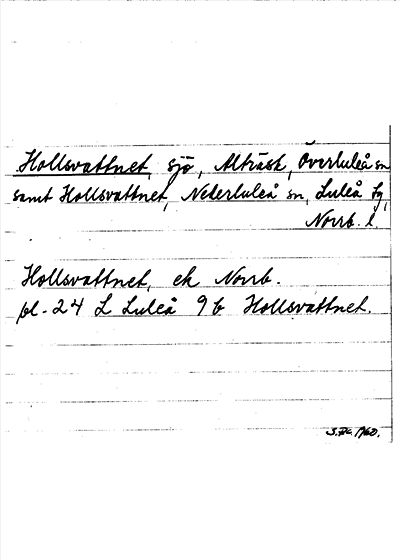 Hollsvattnet, sjö, Alträsk, Överluleå sn
samt Hollsvattnet, Nederluleå sn, Luleå tg,
Norrb. l.
Hollsvattnet, ek Norrb.
pl. 24 L Luleå 9 b Hollsvattnet.
1960.